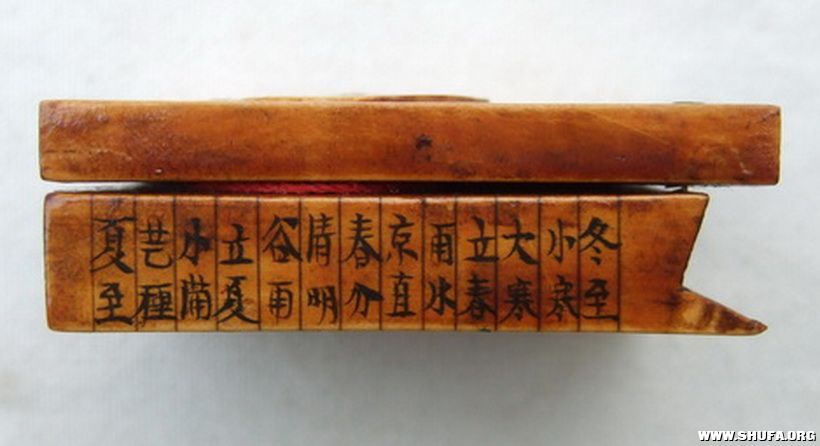 冬至
小寒
大寒
立春
雨水
京直
春分
清明
谷雨
立夏
小㒼
芒種
夏至
WWW.SHUFA.ORG